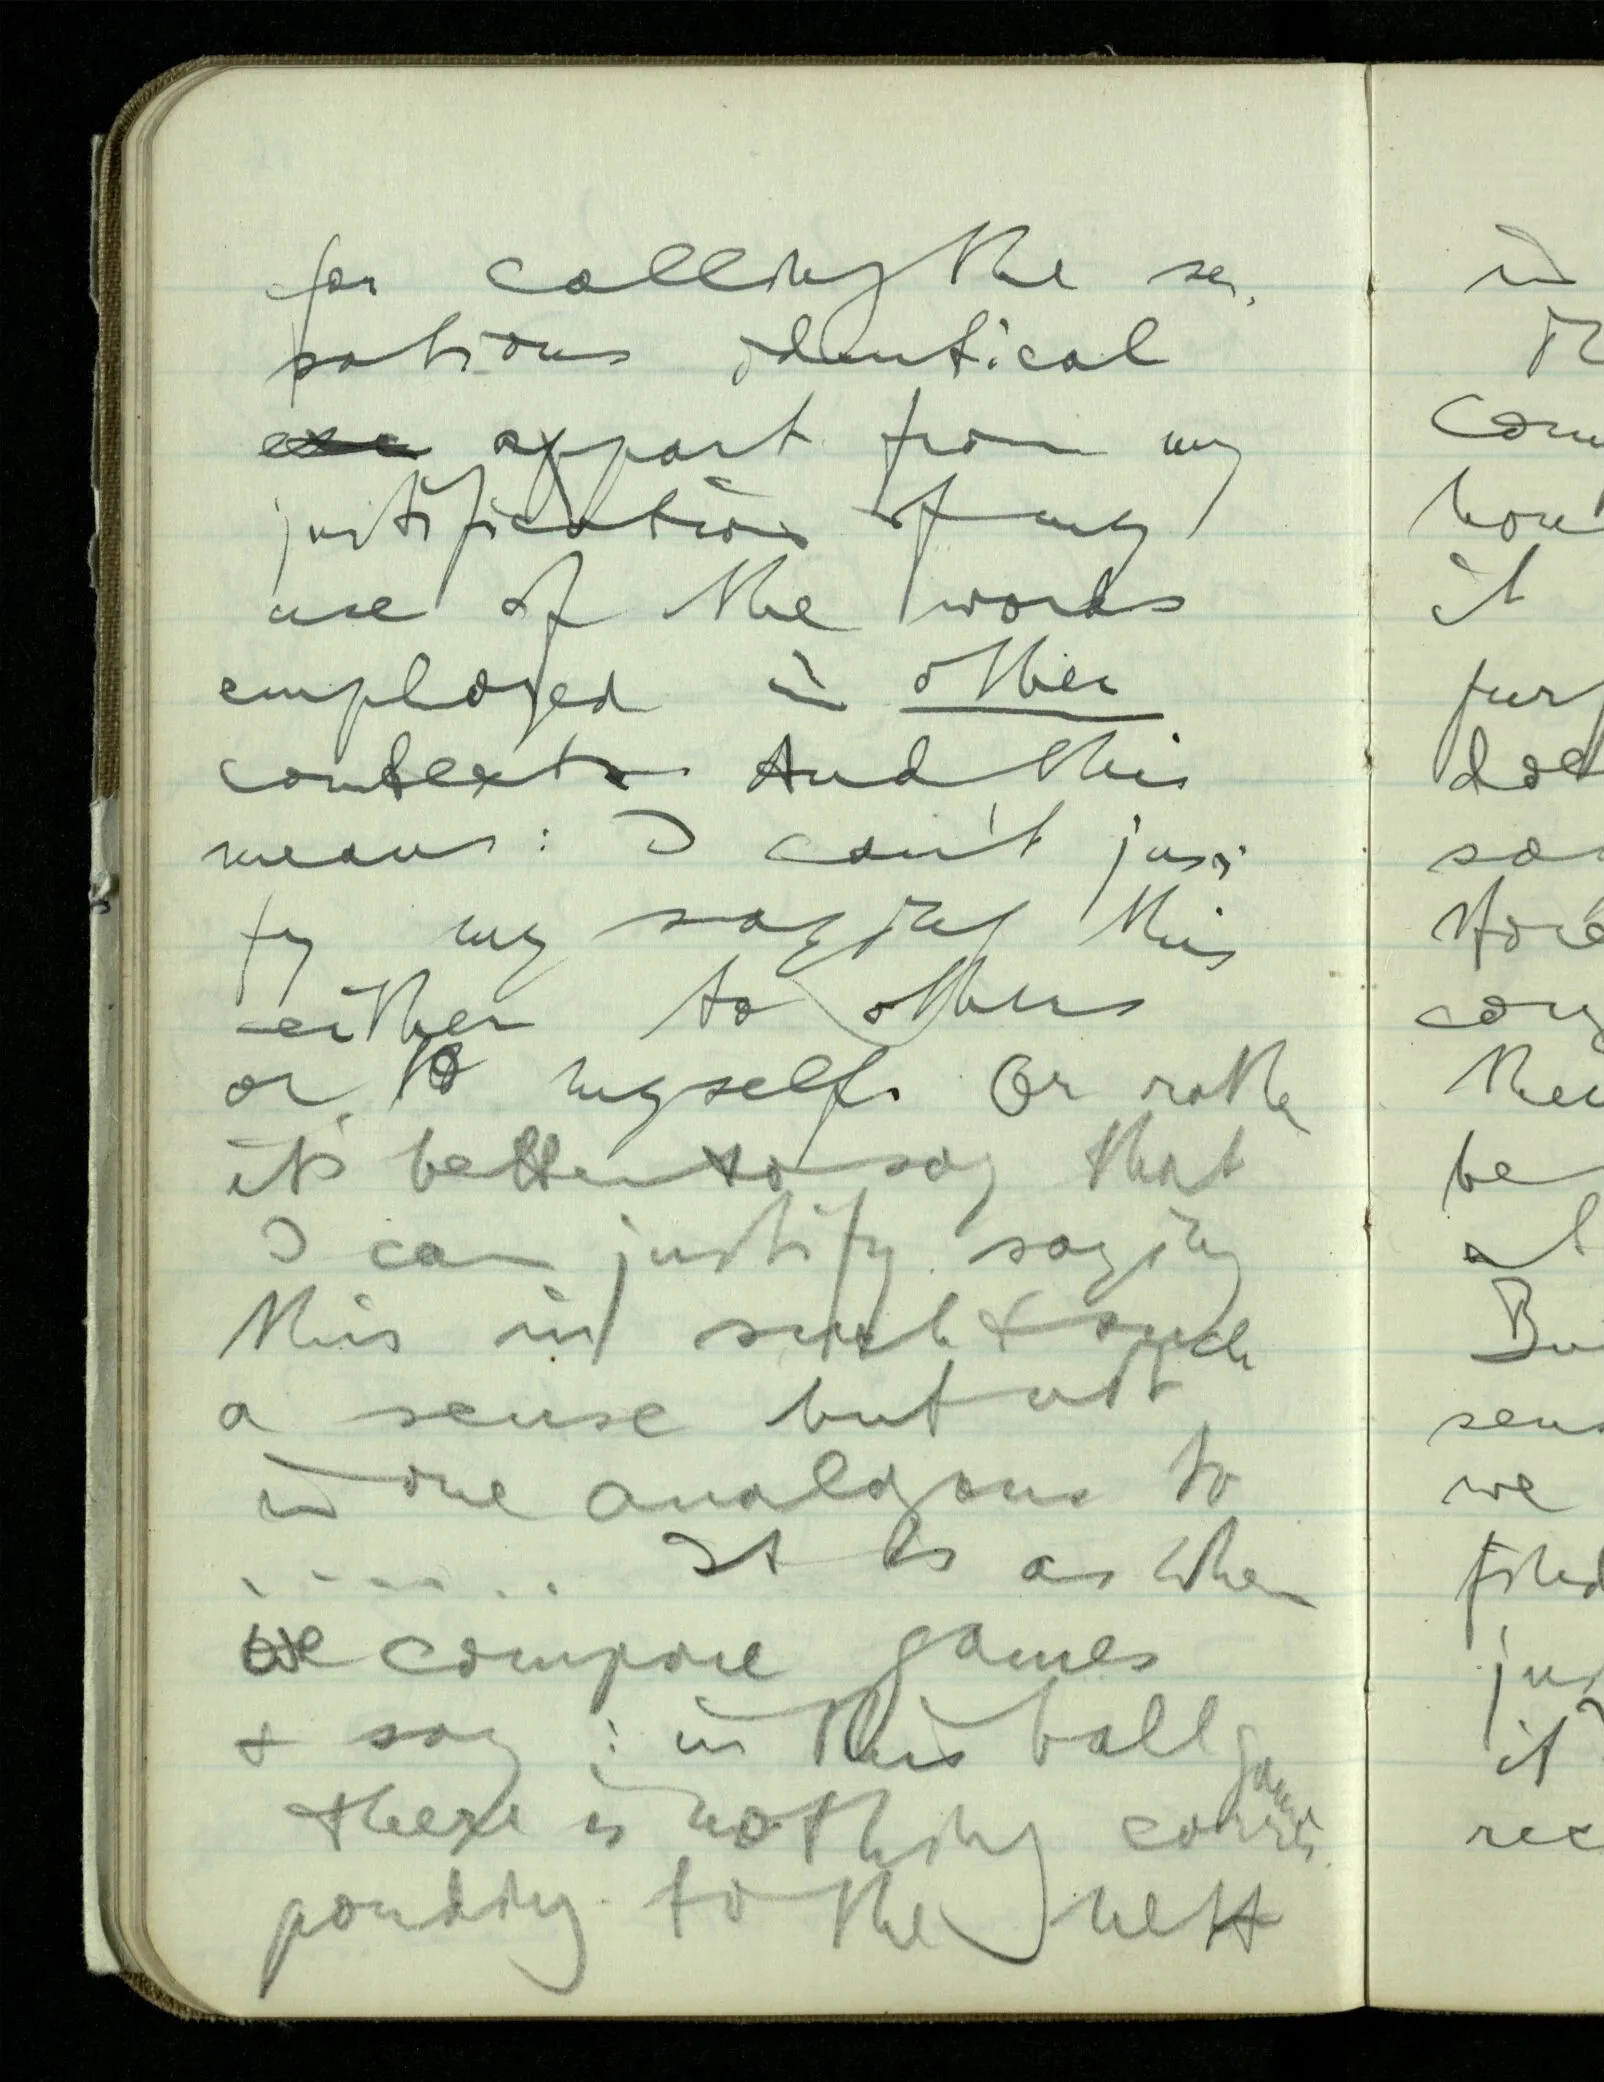 for calling the sen-
sations identical
appart from my
justification of my
use of the words
employed in other
contexts. And this
means: I can't justi
fy my saying this
either to others
or to myself. Or rather
it's better to say that
I can justify saying
this in such & such
a sense but not
in one analogous to
. . . . . . It is as when
we compare games
& say: in this ball game
there is nothing corres-
ponding to the nett
in
Th
com
how
it
purp
does
sa
there
con
then
be
at
Bu
sens
we
find
jus
it
rec